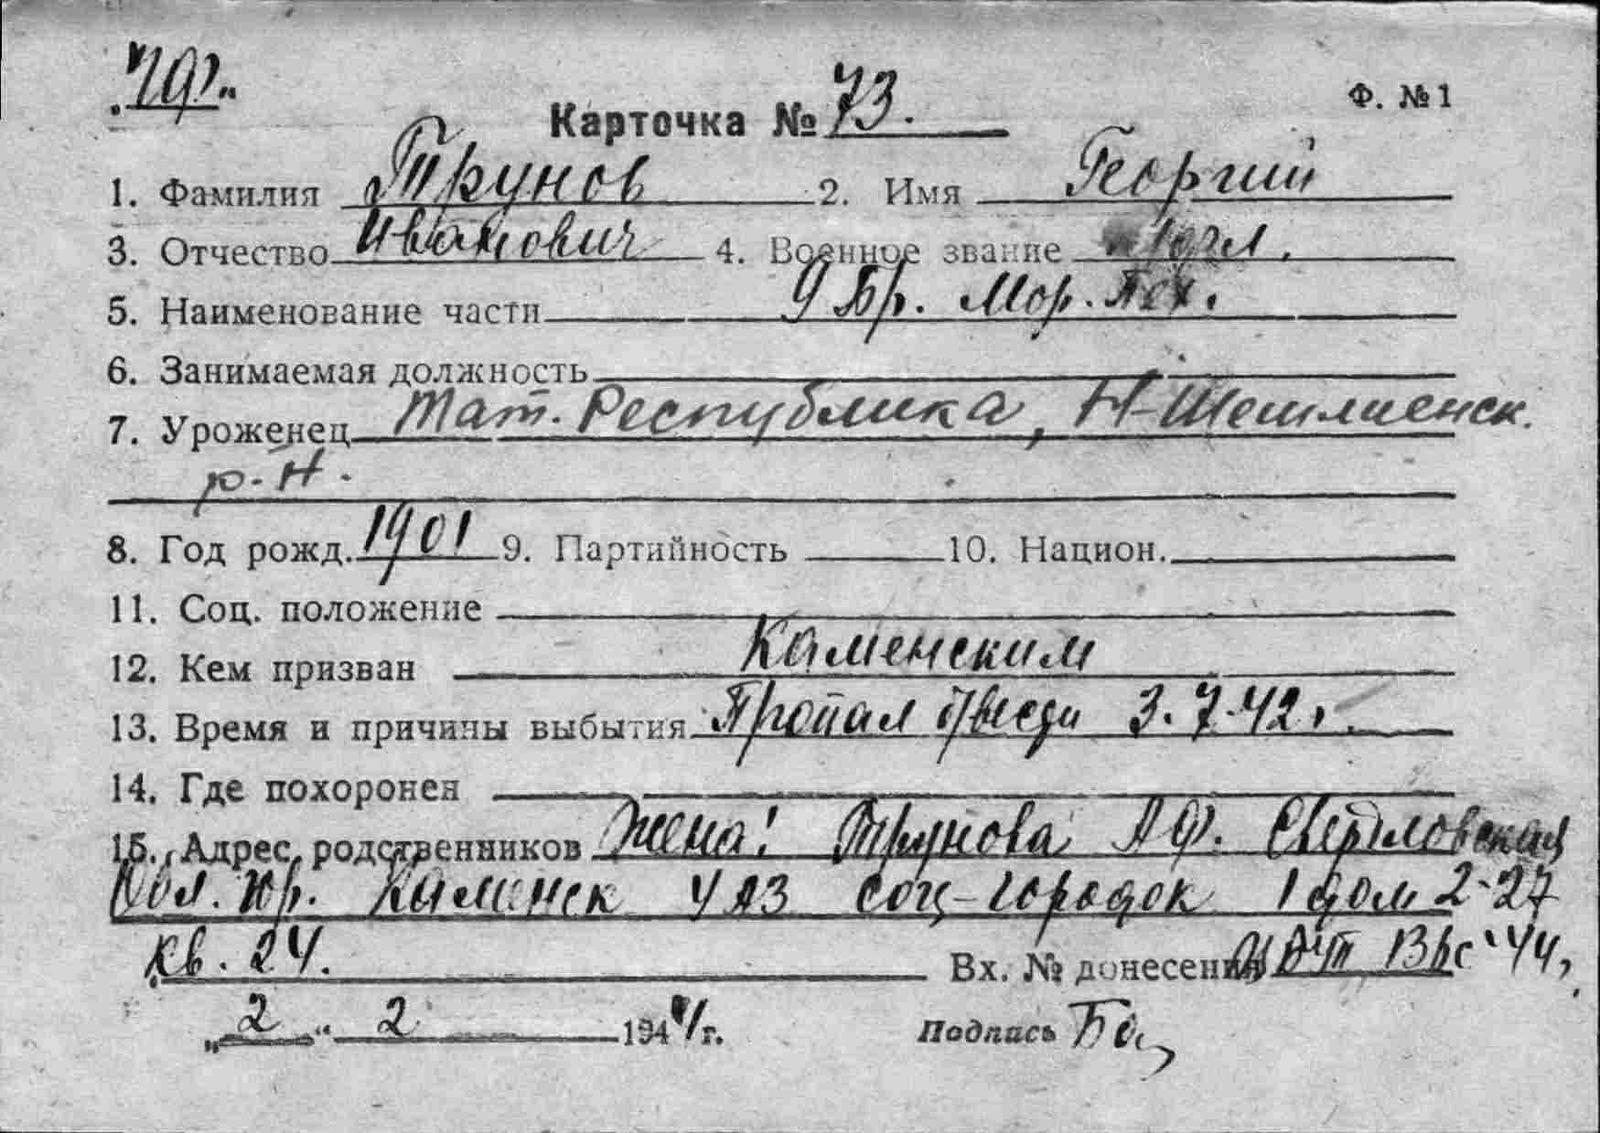 Ф. № 1
Карточка № 73.
1. Фамилия Трунов 2. Имя Георгий
3. Отчество Иванович 4. Военное звание
5. Наименование части 9 Бр. Мор. Пех.
6. Занимаемая должность
7. Уроженец Тат. Республика, Н-Шешминск.
р-н.
8. Год рожд. 1901 9. Партийность 10. Национ.
11. Соц. положение
12. Кем призван Каменским
13. Время и причины выбытия Пропал 3.7.42 г.
14. Где похоронен
15. Адрес родственников Жена: Трунова А Ф. Свердловская
Обл. Каменск УАЗ соц-городок 1 дом 2-27
кв. 24. Вх. № донесения 44
„2“ 2 1944 г. Подпись